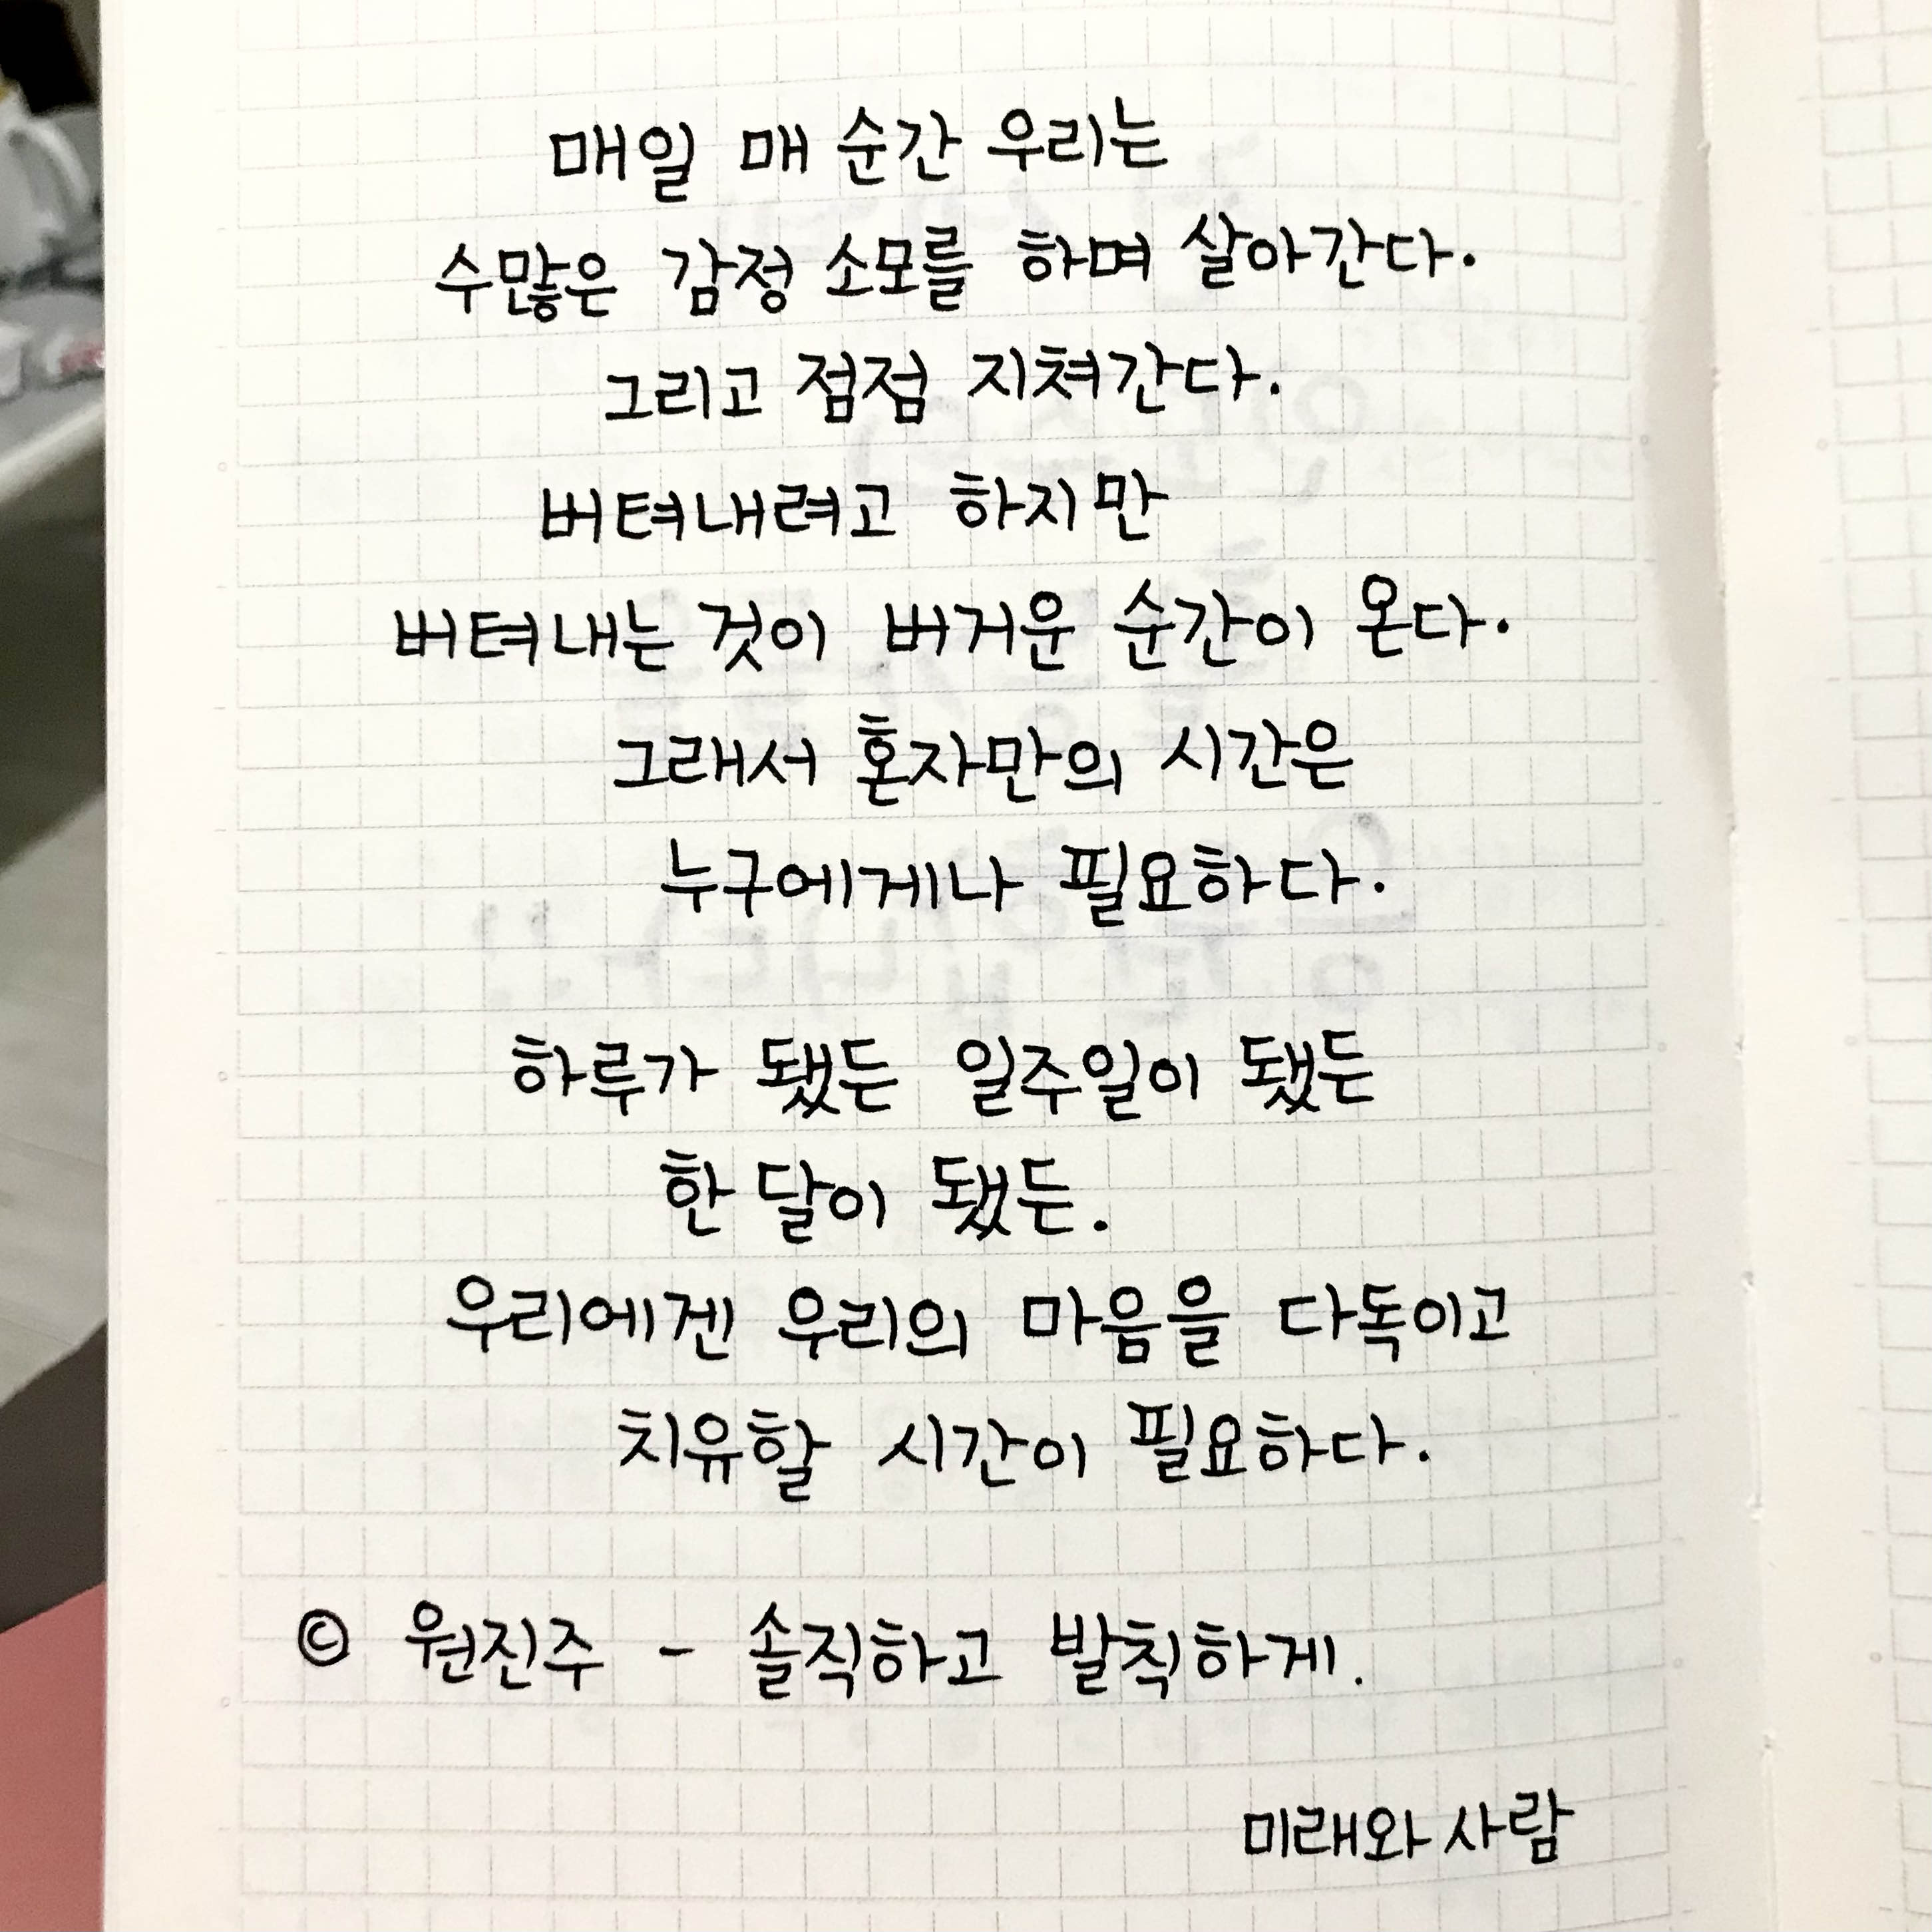 매일 매 순간 우리는
수많은 감정 소모를 하며 살아간다.
그리고 점점 지쳐간다.
버텨내려고 하지만
버텨내는 것이 버거운 순간이 온다.
그래서 혼자만의 시간은
누구에게나 필요하다.
하루가 됐든 일주일이 됐든
한 달이 됐든.
우리에겐 우리의 마음을 다독이고
치유할 시간이 필요하다.
© 원진주 - 솔직하고 발칙하게.
미래와 사람